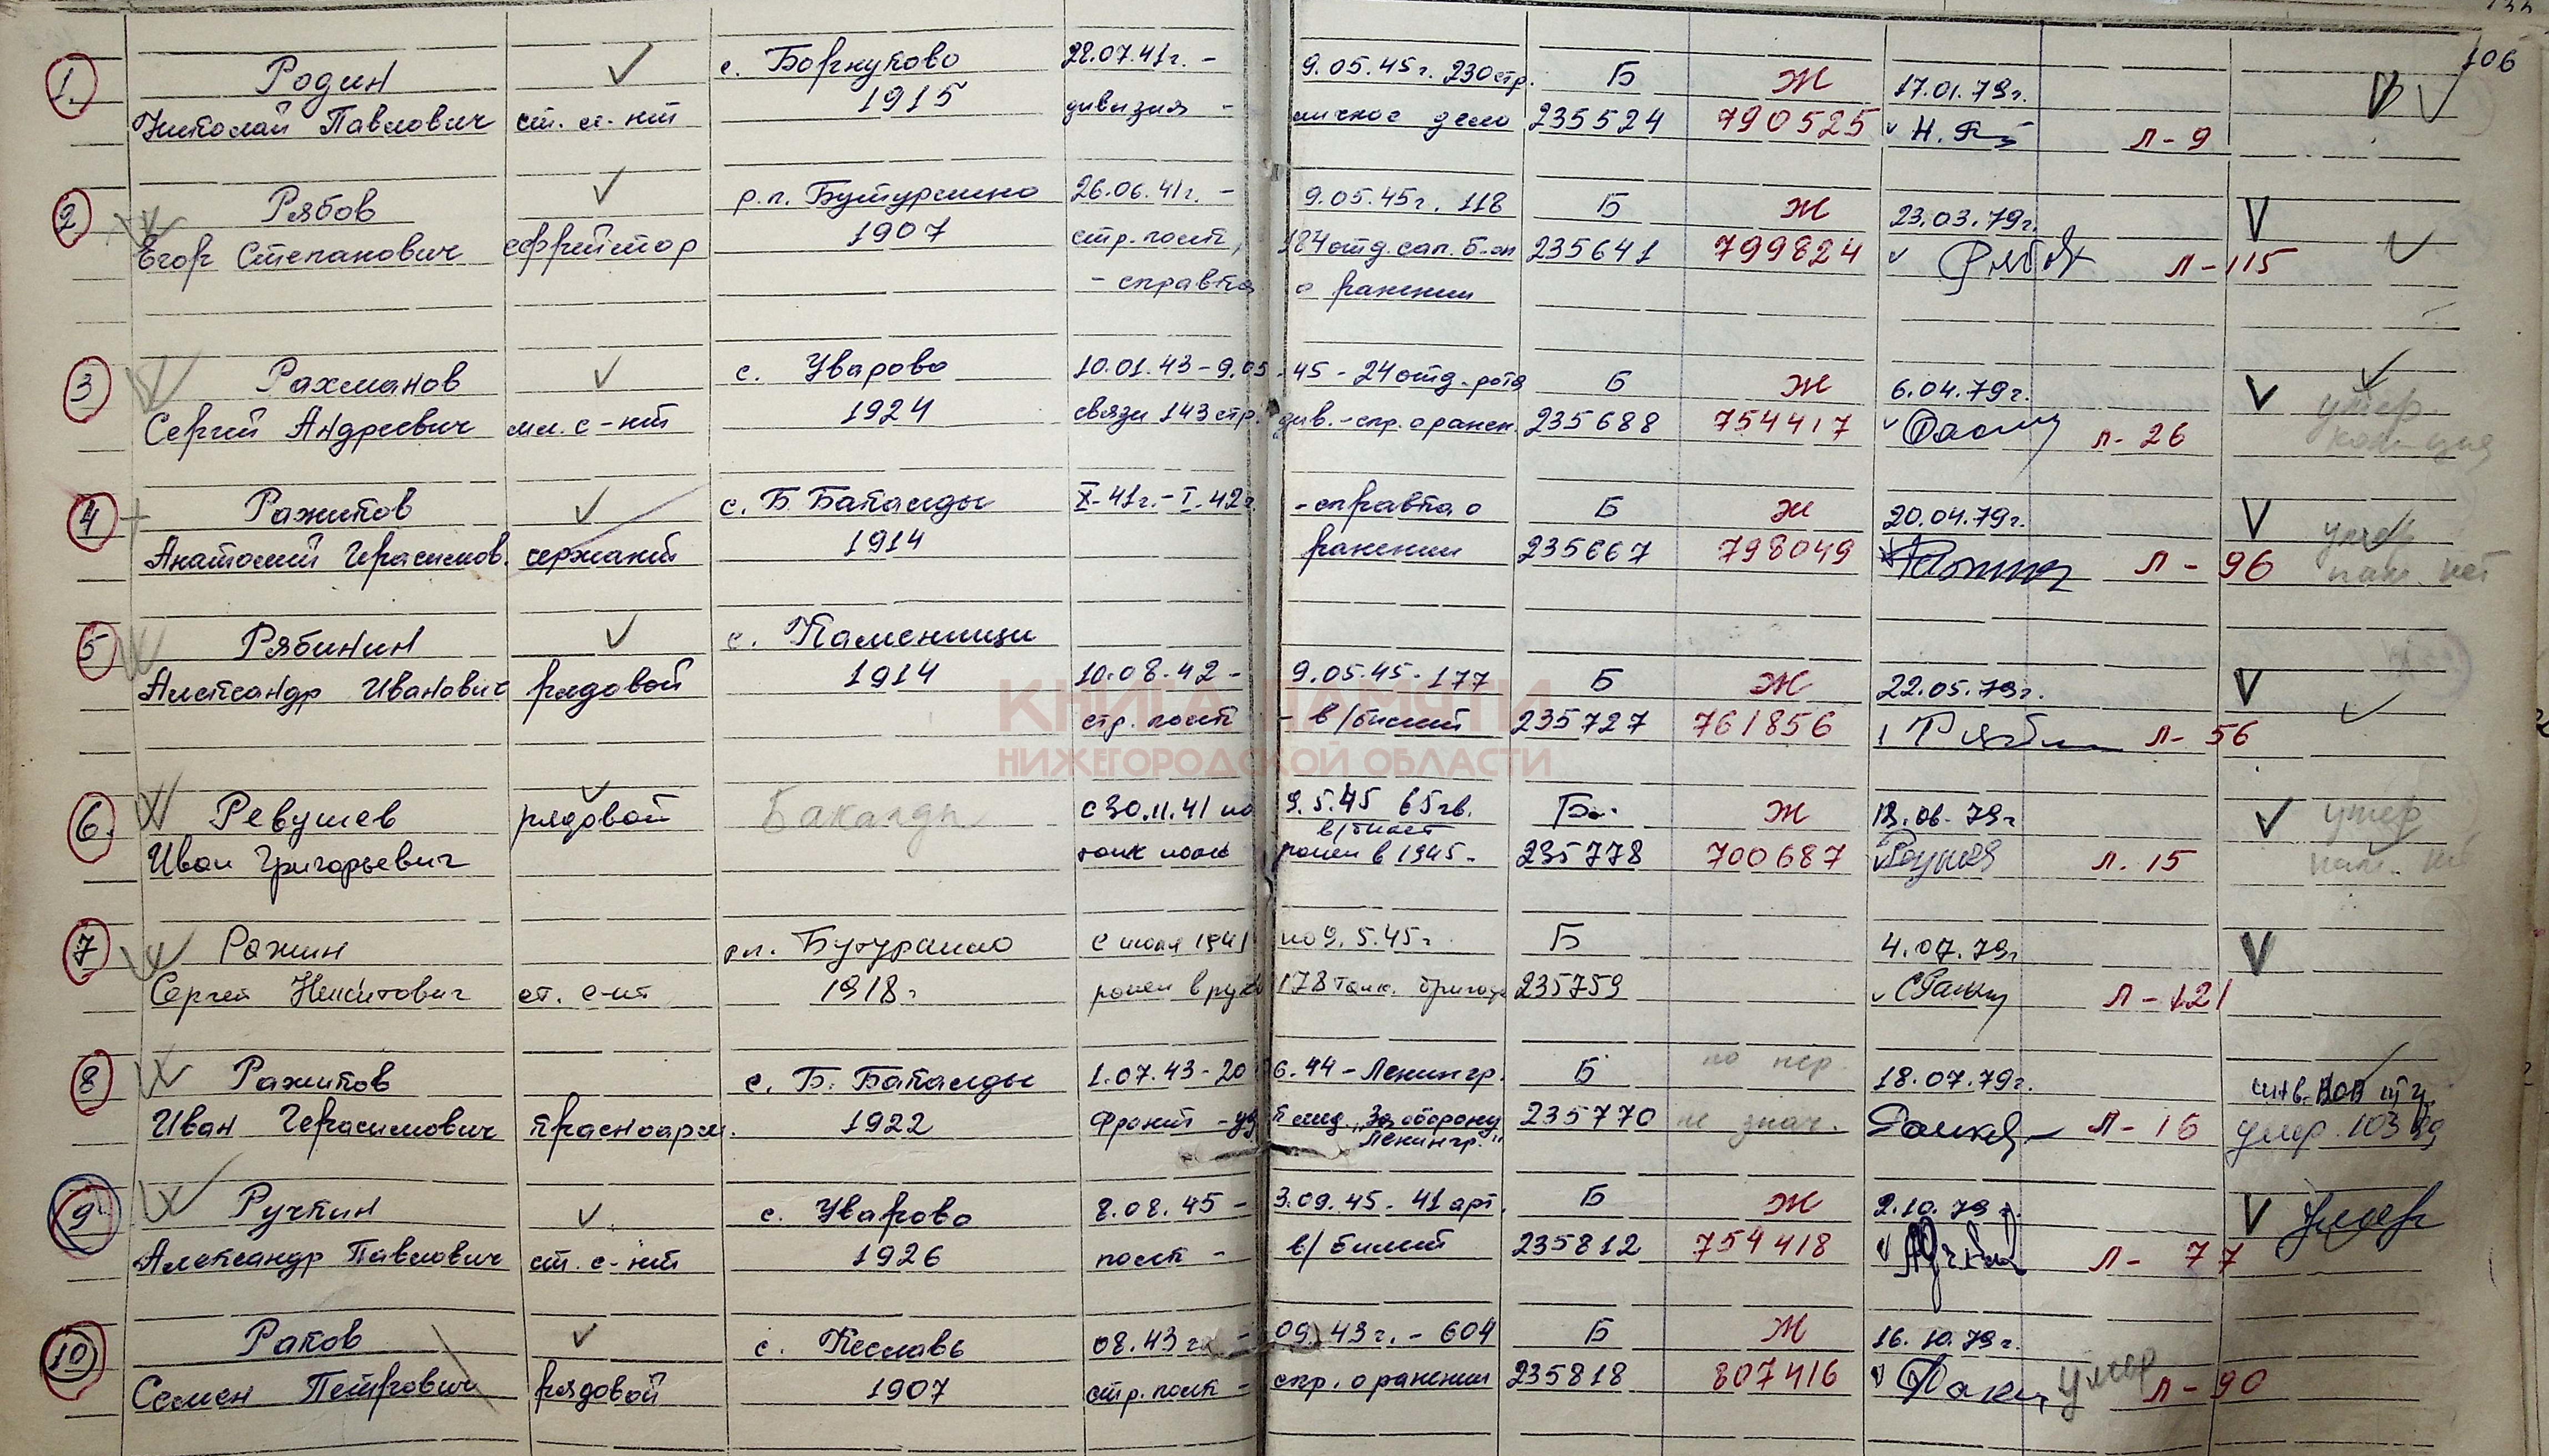 106
1. Родин ✓ с. Борнуково 22.07.41г. - 9.05.45г. 230 стр. Б Ж 17.01.79г.
Николай Павлович ст. с-нт 1915 дивизия - личное дело 235524 790525 Л-9
2 Рябов ✓ р.п. Бутурлино 26.06.41г. - 9.05.45г. 118 Б Ж 23.03.79г. V
Егор Степанович ефрейтор 1907 стр. полк, 184 отд. сап. б-он 235641 799824 Л-115
- справка о ранении
3 Рахманов ✓ с. Уварово 10.01.43 - 9.05.45 - 24 отд. рота Б Ж 6.04.79г. V умер
Сергей Андреевич мл. с-нт 1924 связи 143 стр. див. - спр. о ранен. 235688 754417 Л-26
4 Ражипов ✓ с. Б Бакалды X-41г. - I. 42г. - справка о Б Ж 20.04.79г. V умер
Анатолий Герасимов. сержант 1914 ранении 235667 798049 Л-96 нет
5 Рябинин ✓ с. Каменищи
Александр Иванович рядовой 1914 10.08.42 - 9.05.45 - 177 Б Ж 22.05.79г. V
стр. полк - в/билет 235727 761856 Л-56
КНИГА ПАМЯТИ
НИЖЕГОРОДСКОЙ ОБЛАСТИ
6. Ревушев рядовой Бакалды с 30.11.41 по 9.5.45 65 гв. Б Ж 06.79г V умер
в/билет
Иван Григорьевич танк полк ранен в 1945 - 235778 700687 Л. 15
7 Ражин рп. Бутурлино с июля 1941 по 9.5.45г Б 4.07.79г V
Сергей Никитович ст. с-нт 1918г ранен в руку 178 танк. бригада 235759 Л-121
8 Ражипов с. Б. Бакалды 1.07.43 - 20 6.44 - Ленингр. Б 18.07.79г. инв. ВОВ
Иван Герасимович красноарм. 1922 фронт - уд к мед. „За оборону 235770 не знач. Л-16 умер
Ленингр."
9 Ручкин ✓ с. Уварово 8.08.45 - 3.09.45 - 41 арт. Б Ж 2.10.79г. V умер
Александр Павлович ст. с-нт 1926 полк - в/билет 235812 754418 Л-77
10 Раков ✓ с. Кеславь 08.43г. - 09.43г. - 604 Б Ж 16.10.79г.
Семен Петрович рядовой 1907 стр. полк - спр. о ранении 235818 807416 умер Л-90